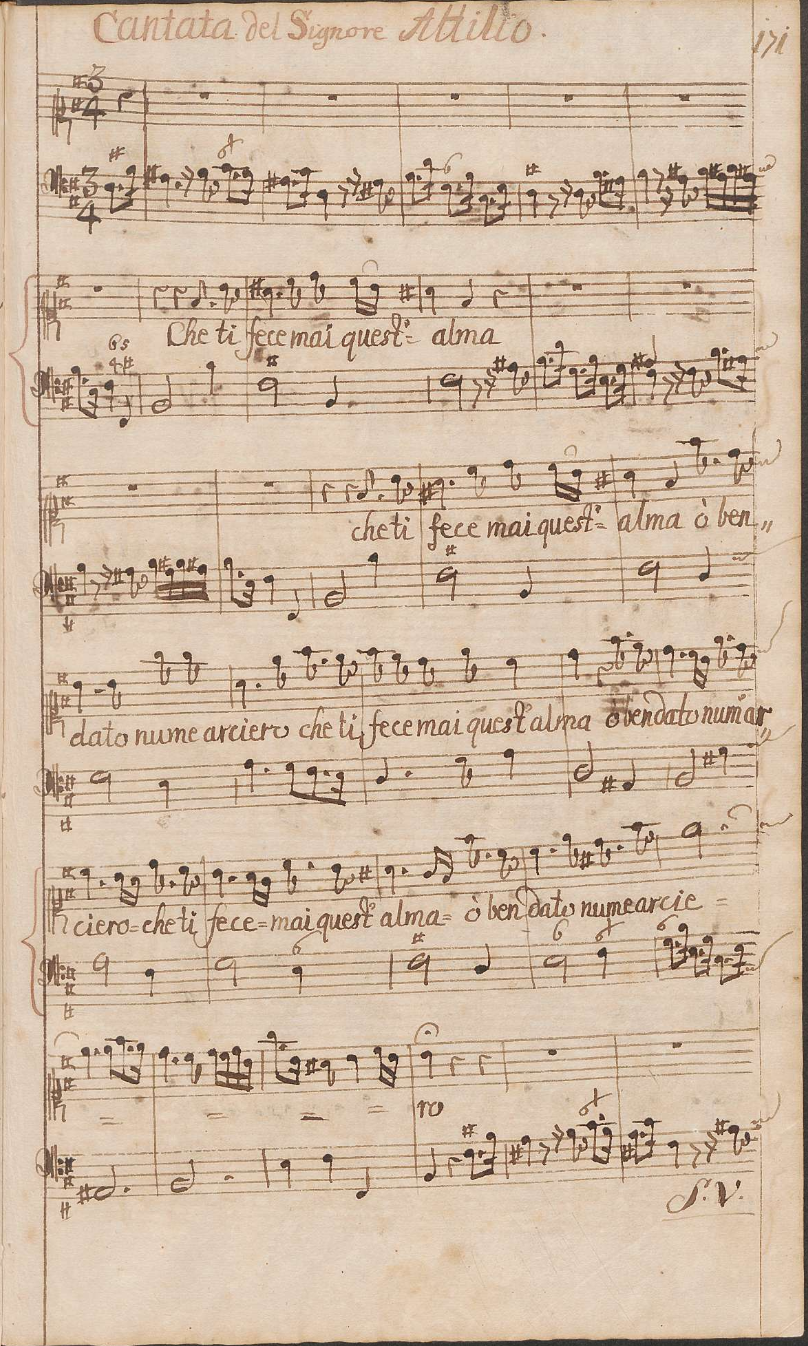 Cantata del Signore Attilio.
171
Che ti fece mai quest'= alma
che ti fece mai quest'= alma ò ben„
dato nume arciero che ti fece mai quest'alma ò ben dato num'ar„
ciero=che ti fece=mai quest'alma= ò ben dato nume arcie =
= = = = ro
S. V.